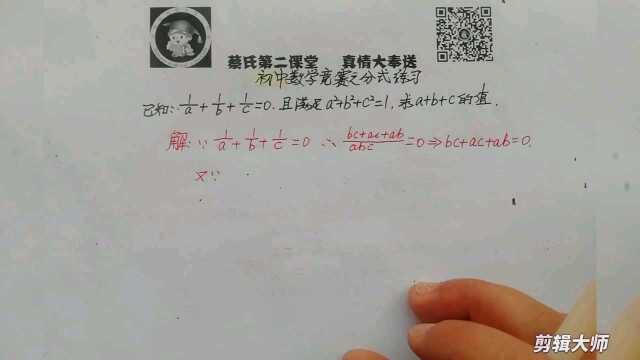 蔡氏第二课堂 真情大奉送
初中数学竞赛之分式练习
已知: 1/a + 1/b + 1/c = 0. 且满足 a²+b²+c²=1, 求 a+b+c 的值.
解: ∵ 1/a + 1/b + 1/c = 0 ∴ (bc+ac+ab)/abc = 0 ⇒ bc+ac+ab=0.
又∵
剪辑大师